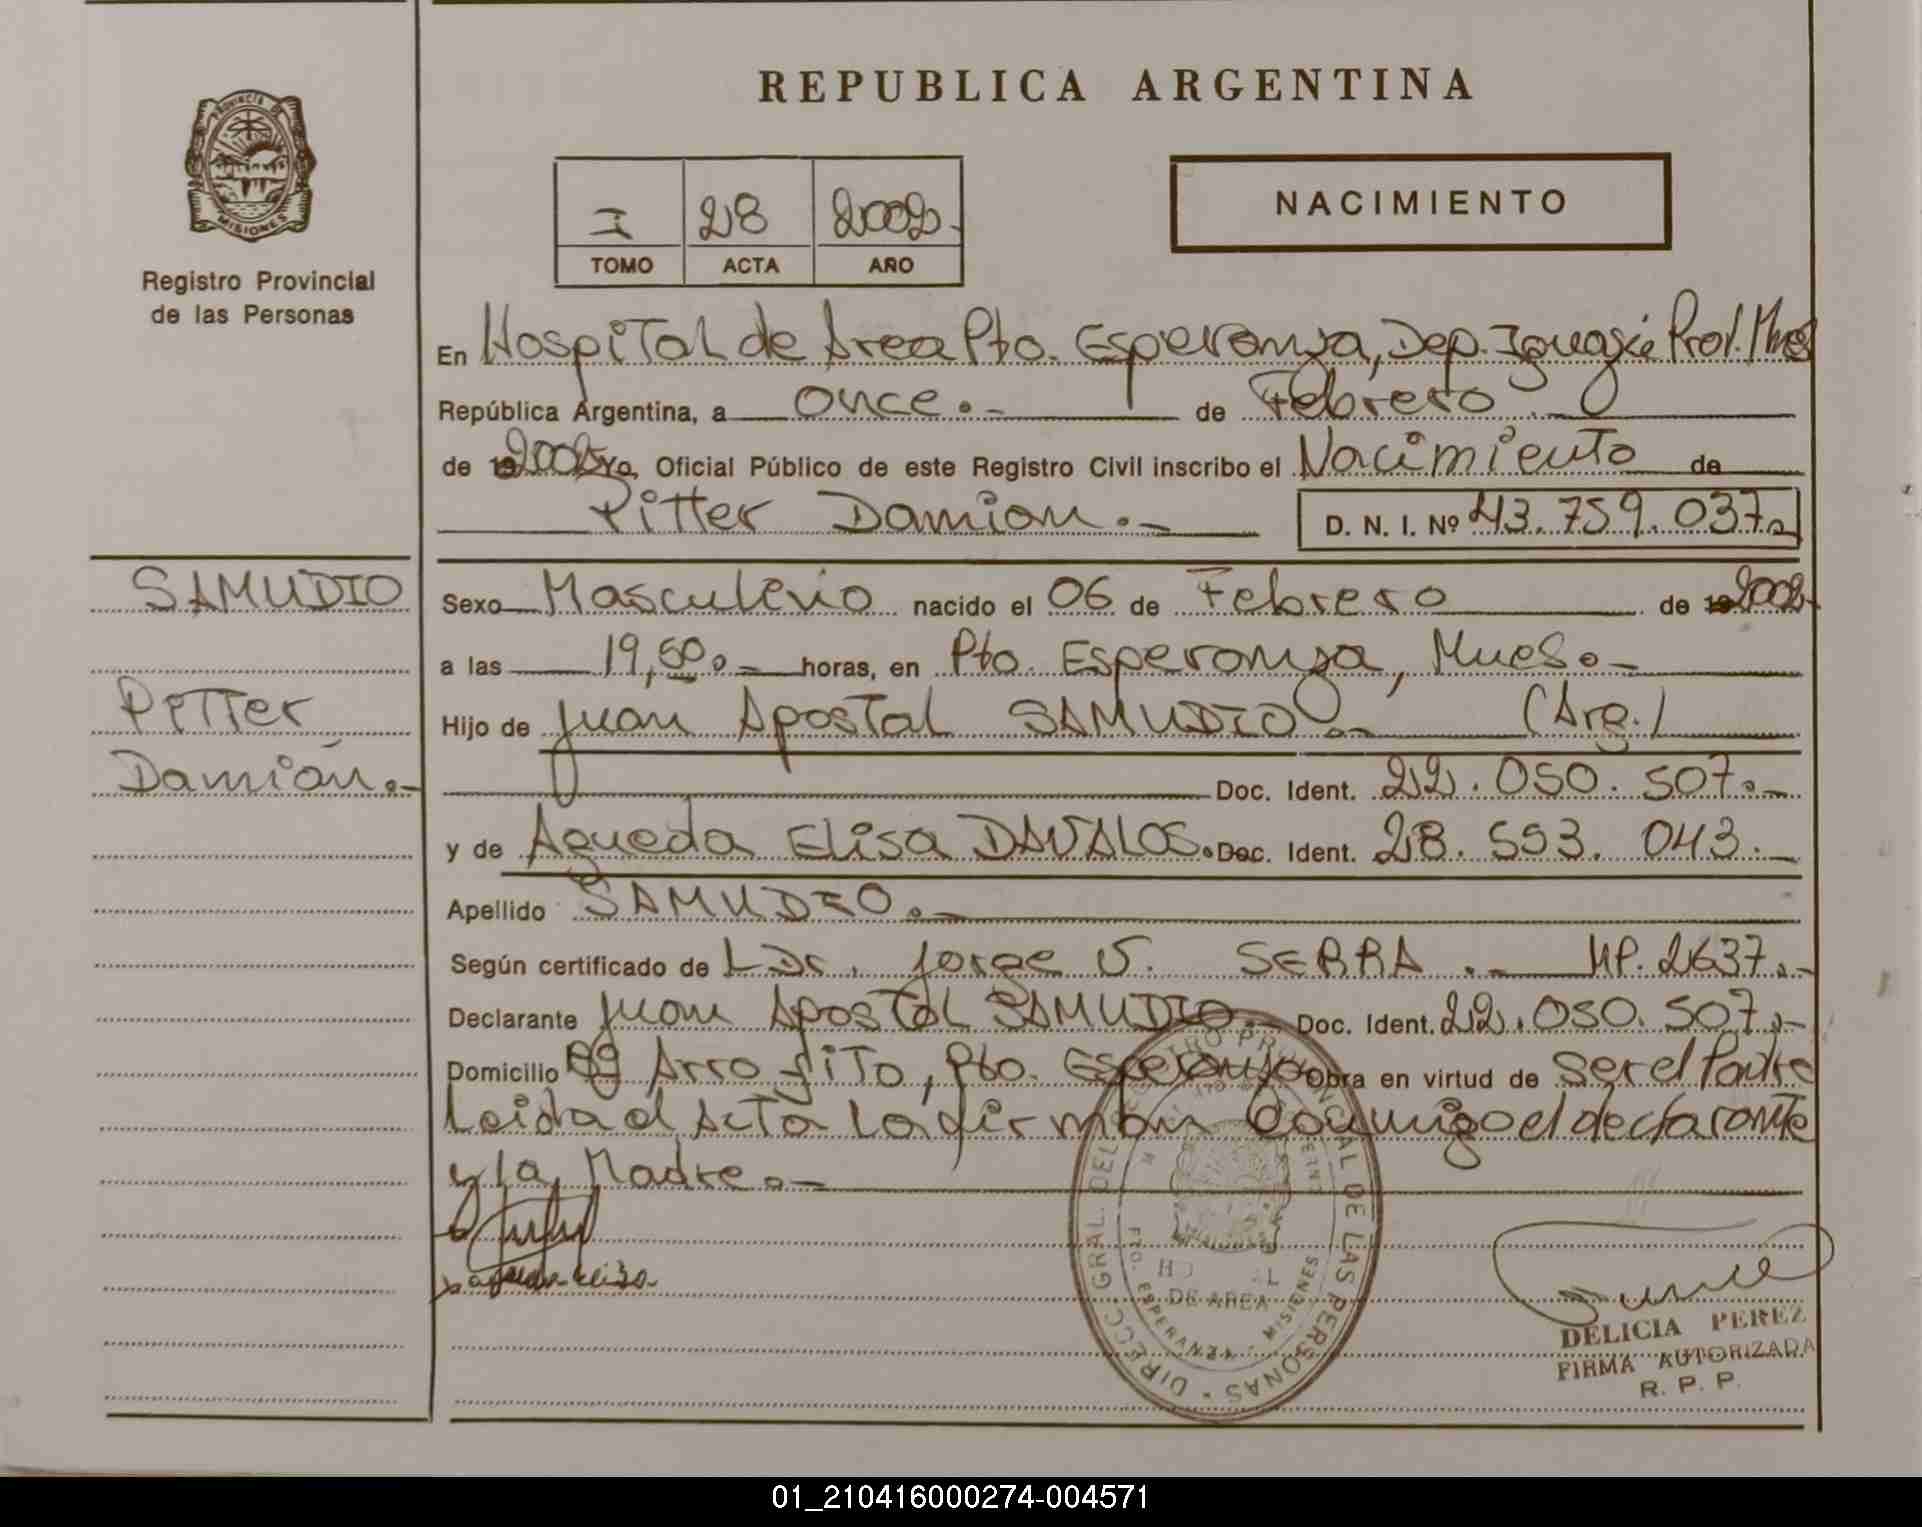 REPUBLICA ARGENTINA
PROVINCIA DE
MISIONES
Registro Provincial
de las Personas
I 28 2002.-
TOMO ACTA AÑO
NACIMIENTO
En Hospital de Area Pto. Esperanza, Dep. Iguazú Prov. Mnes
República Argentina, a once.- de Febrero
de 2002 Yo, Oficial Público de este Registro Civil inscribo el Nacimiento de
Pitter Damian.- D. N. I. Nº 43.759.037.-
SAMUDIO
Pitter
Damián.-
Sexo Masculino nacido el 06 de Febrero de 2002.-
a las 19,50.- horas, en Pto. Esperanza, Mnes.-
Hijo de Juan Apostol SAMUDIO.- (Arg.)
Doc. Ident. 22.050.507.-
y de Agueda Elisa DAVALOS. Doc. Ident. 28.593.043.-
Apellido SAMUDIO.-
Según certificado de Dr. Jorge V. SERRA.- MP. 2637.-
Declarante Juan Apostol SAMUDIO.- Doc. Ident. 22.050.507.-
Domicilio Bº Arrosito, Pto. Esperanza Obra en virtud de ser el Padre
Leida el Acta la firman conmigo el declarante
y la Madre.-
DIRECC. GRAL. DEL REGISTRO PROVINCIAL DE LAS PERSONAS
DE AREA
PTO. ESPERANZA - MISIONES
DELICIA PEREZ
FIRMA AUTORIZADA
R. P. P.
01_210416000274-004571